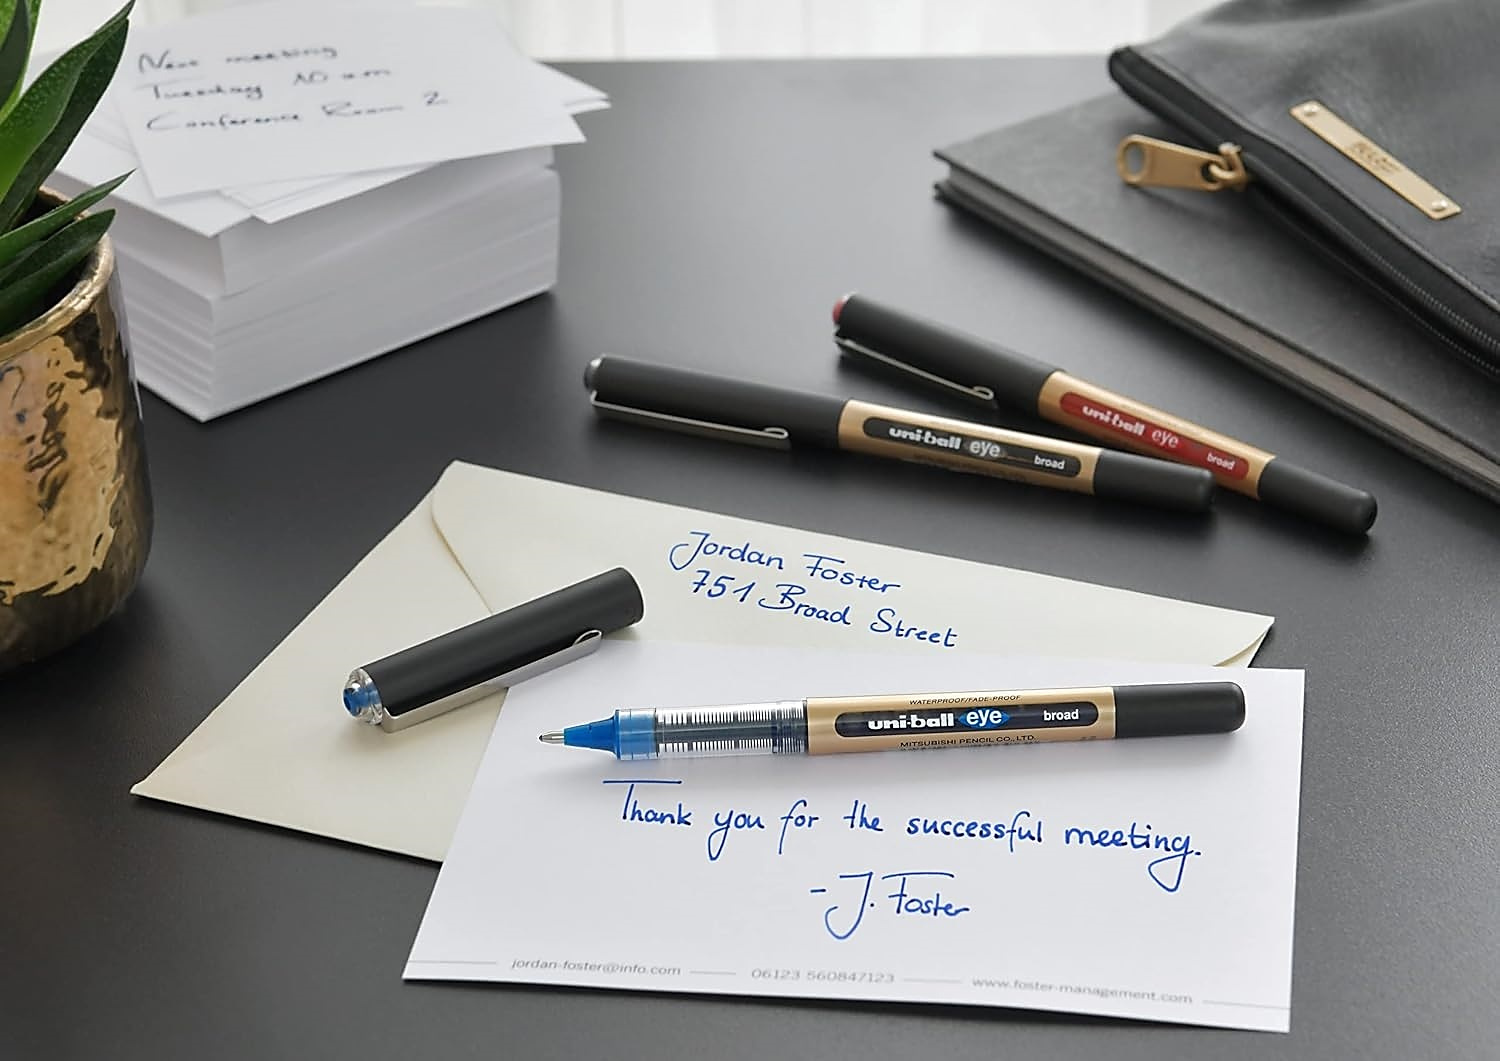 Next meeting
Tuesday 10 am
Conference Room 2
uni-ball eye broad
uni-ball eye broad
Jordan Foster
751 Broad Street
WATERPROOF/FADE-PROOF
uni-ball eye broad
MITSUBISHI PENCIL CO., LTD.
Thank you for the successful meeting.
- J. Foster
jordan-foster@info.com 06123 560847123 www.foster-management.com